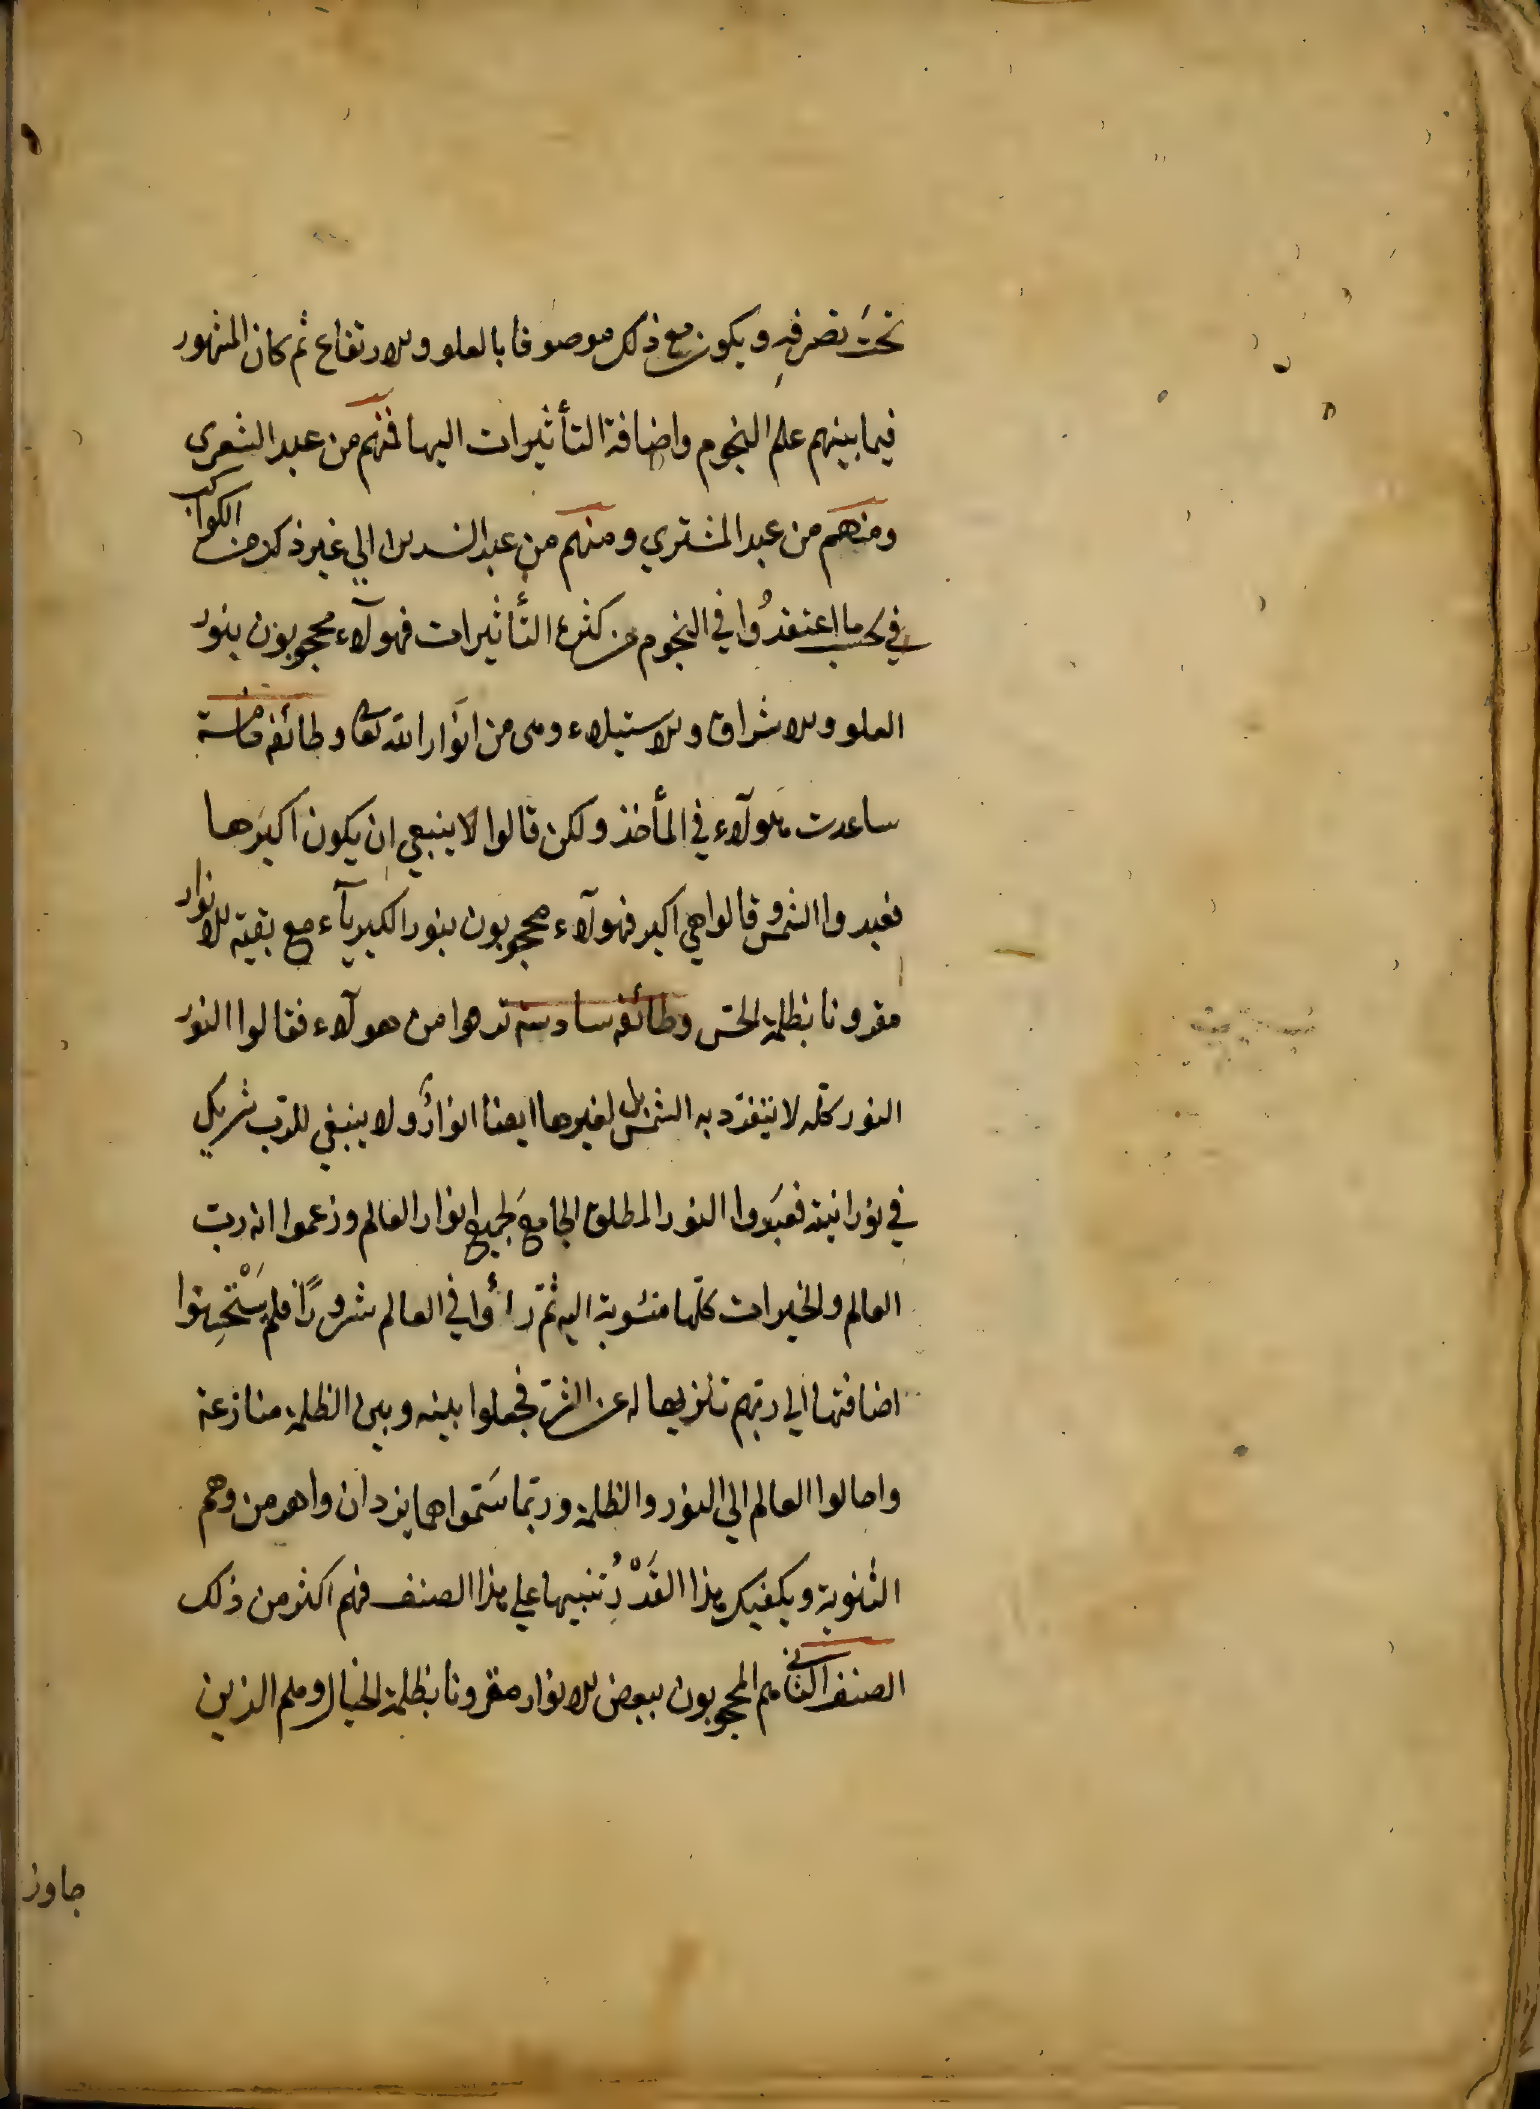 تحت تصرفه ويكون مع ذلك موصوفا بالعلو والارتفاع ثم كان المشهور
فيما بينهم علم النجوم واضافة التأثيرات اليها فمنهم من عبد الشعرى
ومنهم من عبد المشتري ومنهم من عبد الى غير ذلك من الكواكب
بحسب ما اعتقدُوا في النجوم من كثرة التأثيرات فهولآء محجوبون بنور
العلو والاشراق والاستيلاء وهى من انوار الله تعا وطائفة خامسة
ساعدت هولآء في المأخذ ولكن قالوا لا ينبغي ان يكون اكبرها
فعبدوا الشمس وقالوا هي اكبر فهولآء محجوبون بنور الكبريآء مع بقية الانوار
مقرونا بظلمة الحسّ وطائفة سادسة ترقوا من هولآء فقالوا النور
النور كلّه لا يتفرّد به الشمس بل لغيرها ايضا انوارٌ ولا ينبغي للربّ شريك
في نورانيته فعبَدوا النور المطلق الجامع لجميع انوار العالم وزعموا انه ربّ
العالم والخيرات كلّها منسوبة اليه ثمّ رأوا في العالم شرورًا فلم يَسْتَحسِنوا
اضافتها الى ربّهم تنزيها له عن الشرّ فجعلوا بينه وبين الظلمة منازعة
واحالوا العالم الى النور والظلمة وربّما سَمّوا هما يزدان واهرمن وهم
الثنوية ويكفيك هذا القَدْرُ تنبيها على هذا الصنف فهم اكثر من ذلك
الصنف الثاني هم المحجوبون ببعض الانوار مقرونا بظلمة الخيال وهم الذين
جاوز